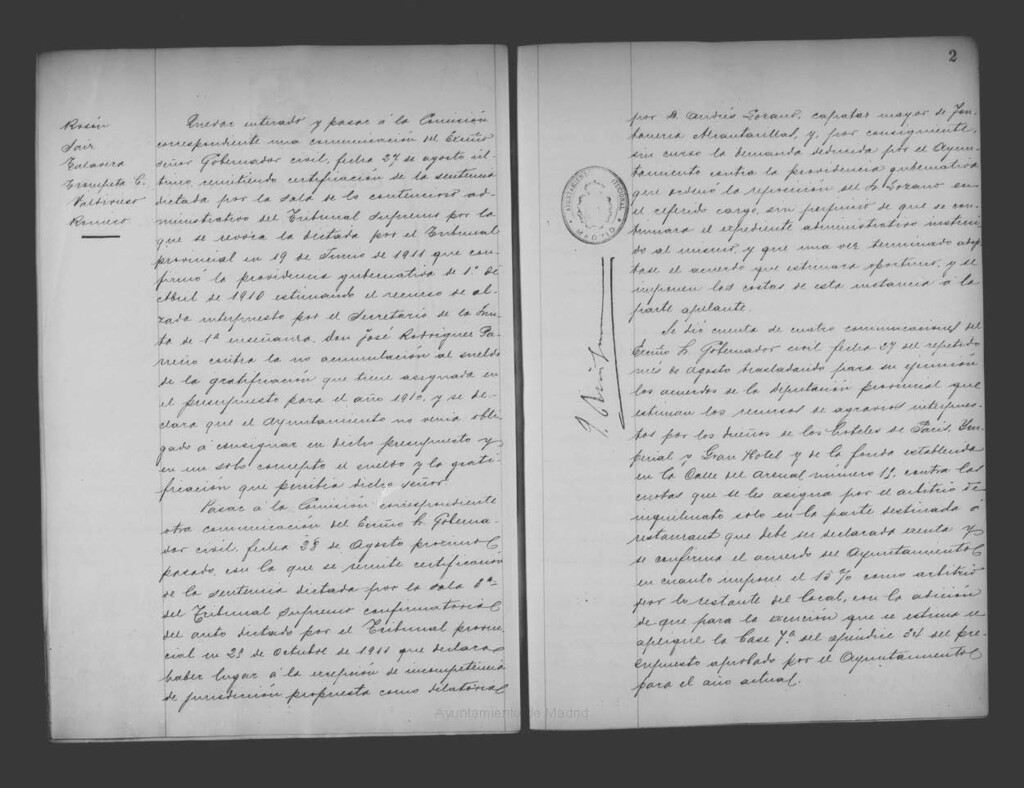 Rosón
Saiz
Talavera
Trompeta C.
Valdivieso
Romero
Quedar enterado y pasar á la Comisión
correspondiente una comunicación del Excmo
señor Gobernador civil, fecha 27 de agosto úl-
timo, remitiendo certificación de la sentencia
dictada por la sala de lo contencioso ad-
ministrativo del Tribunal Supremo por la
que se revoca la dictada por el Tribunal
provincial en 19 de Junio de 1911 que con-
firmó la providencia gubernativa de 1º de
Abril de 1910 estimando el recurso de al-
zada interpuesto por el Secretario de la Jun-
ta de 1ª enseñanza, Don José Rodriguez Pa-
reño contra la no acumulación al sueldo
de la gratificación que tiene asignada en
el presupuesto para el año 1910, y se de-
clara que el Ayuntamiento no venia obli-
gado á consignar en dicho presupuesto y
en un solo concepto el sueldo y la grati-
ficación que percibia dicho señor.
Pasar á la Comisión correspondiente
otra comunicación del Excmo Sr Goberna-
dor civil, fecha 28 de Agosto próximo
pasado, con la que se remite certificación
de la sentencia dictada por la sala 3ª
del Tribunal Supremo confirmatoria
del auto dictado por el Tribunal provin-
cial en 23 de Octubre de 1911 que declara
haber lugar á la excepción de incompetencia
de jurisdicción propuesta como dilatoria
2
por D. Andrés Lozano, capataz mayor de Fon-
taneria Alcantarillas, y, por consiguiente,
sin curso la demanda deducida por el Ayun-
tamiento contra la providencia gubernativa
que ordenó la reposición del Sr Lozano en
el referido cargo, sin perjuicio de que se con-
tinuara el expediente administrativo instrui-
do al mismo, y que una vez terminado adop-
tase el acuerdo que estimara oportuno, y se
imponen las costas de esta instancia á la
parte apelante.
Se dió cuenta de cuatro comunicaciones del
Excmo Sr Gobernador civil fecha 27 del repetido
mes de Agosto trasladando para su ejecución
los acuerdos de la Diputación provincial que
estiman los recursos de agravios interpues-
tos por los dueños de los Hoteles de Paris, Im-
perial y Gran Hotel y de la fonda establecida
en la Calle del Arenal número 15, contra las
cuotas que se les asigna por el arbitrio de
inquilinato solo en la parte destinada á
restaurant que debe ser declarada exenta y
se confirma el acuerdo del Ayuntamiento
en cuanto impone el 15 % como arbitrio
por lo restante del local, con la adición
de que para la exención que se estima se
aplique la base 7ª del apéndice 34 del pre-
supuesto aprobado por el Ayuntamiento
para el año actual.
AYUNTAMIENTO
MADRID
Ayuntamiento de Madrid